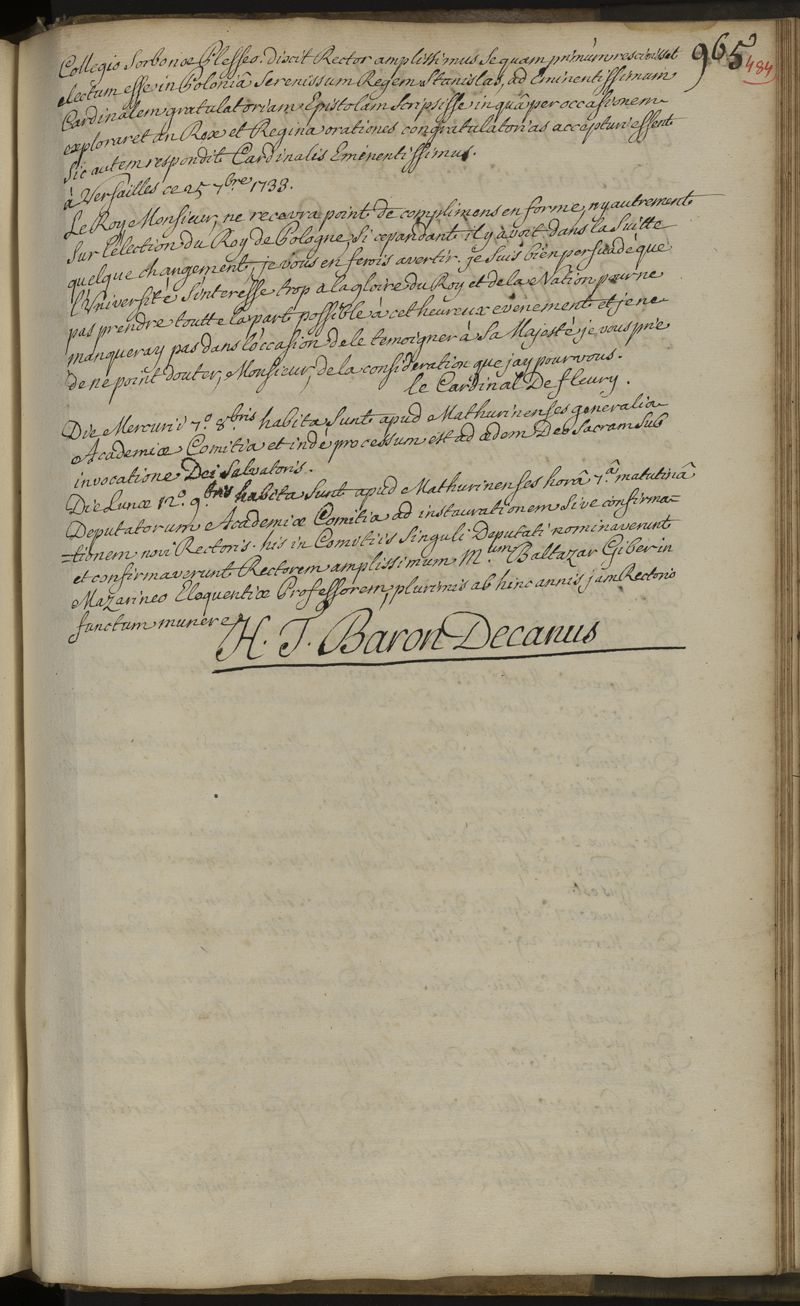 965
484
Collegio Sorbonæ Plesseo. dixit Rector amplissimus se quam primùm rescivisset
electum esse in Poloniâ Serenissum Regem Stanislas, ad Eminentissimum
Cardinalem gratulatoriam Epistolam scripsisse in quâ per occasionem
exploraret an Rex et Regina orationes congratulatorias accepturi essent
Sic autem respondit Cardinalis Eminentissimus.
à Versailles ce 25 7.bre 1733.
Le Roy Monsieur, ne recevra point de complimens en forme, ny autrement
Sur l'election du Roy de Pologne, Si cepandant il y avoit dans la Suitte
quelque changement, je vous en ferois avertir. je suis bien persuadé que
l'Université s'interesse trop a la gloire du Roy et de la Nation pour ne
pas prendre toutte la part possible à cet heureux evenement et je ne
manqueray pas dans l'occasion de le temoigner à Sa Majesté je vous prie
de ne point douter, Monsieur, de la consideration que jay pour vous.
le Cardinal De fleury.
Die Mercurii 7.º 8.bris habita sunt apud Mathurinenses generalia
Academiæ Comitia et indè processum est ad ædem Deo Sacram sub
invocatione Dei Salvatoris.
Die Lunæ 12.º 9.bris habita sunt apud Mathurinenses horâ 7.â matutinâ
Deputatorum Academiæ Comitia ad instaurationem sive confirma=
=tionem novi Rectoris. his in Comitiis singuli Deputati nominaverunt
et confirmaverunt Rectorem amplissimum M.um Baltazar Giber in
Mazarineo Eloquentiæ Professorem, plurimis ab hinc annis jam Rectorio
functum munere.
H. T. Baron Decanus